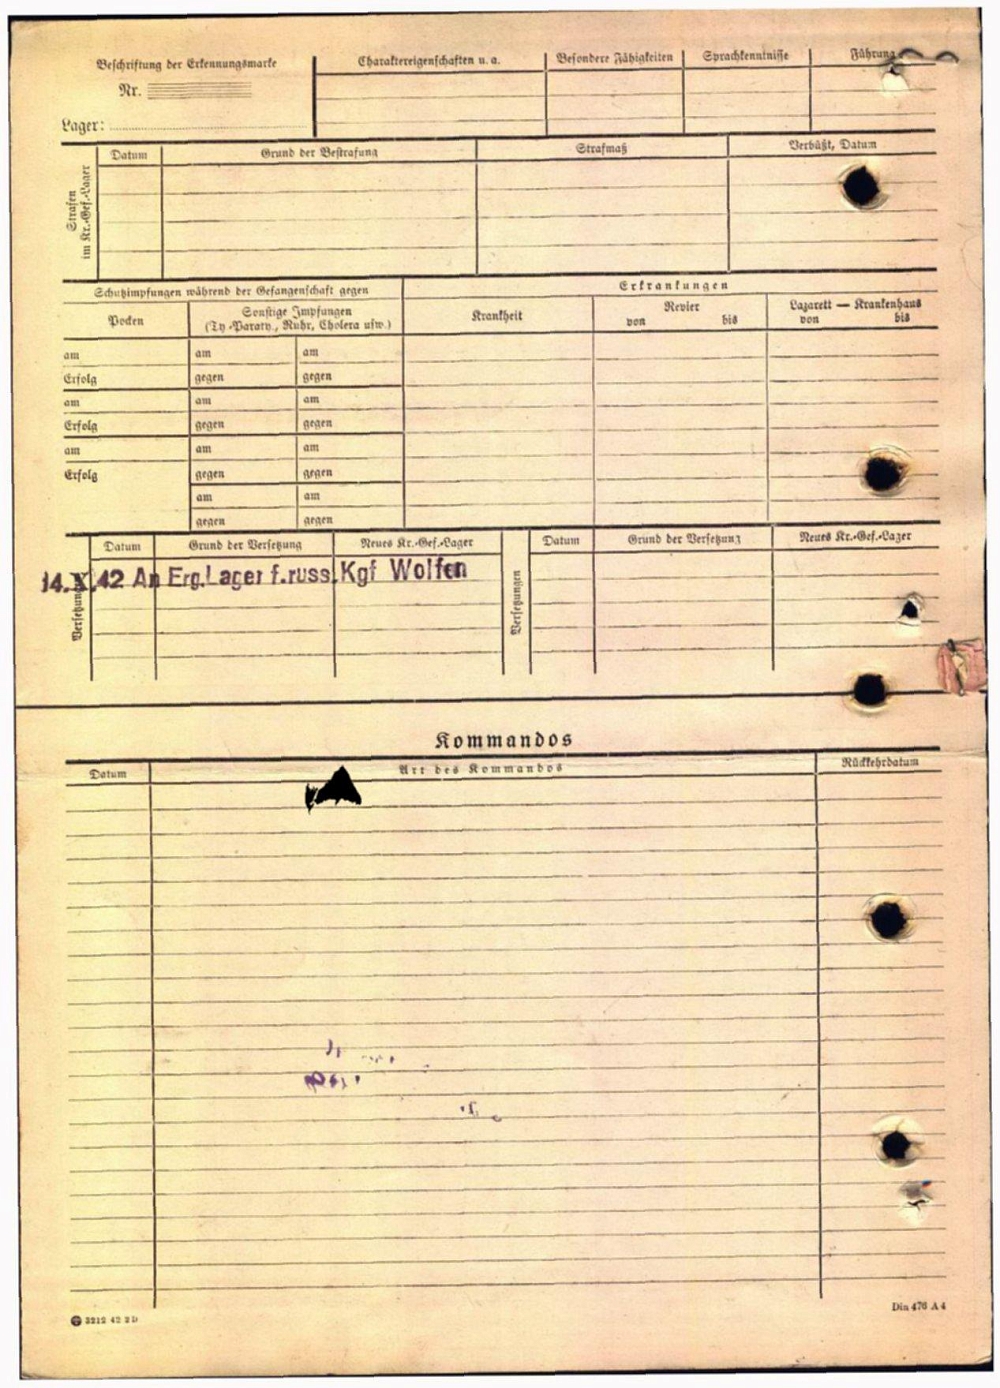 Beschriftung der Erkennungsmarke
Nr.
Lager:
Charaktereigenschaften u. a.
Besondere Fähigkeiten
Sprachkenntnisse
Führung
Strafen im Kr.-Gef.-Lager
Datum
Grund der Bestrafung
Strafmaß
Verbüßt, Datum
Schutzimpfungen während der Gefangenschaft gegen
Erkrankungen
Pocken
Sonstige Impfungen
(Ty.-Paraty., Ruhr, Cholera usw.)
Krankheit
Revier
von bis
Lazarett — Krankenhaus
von bis
am am am
Erfolg gegen gegen
am am am
Erfolg gegen gegen
am am am
Erfolg gegen gegen
am am
gegen gegen
Versetzungen
Datum Grund der Versetzung Neues Kr.-Gef.-Lager
Versetzungen
Datum Grund der Versetzung Neues Kr.-Gef.-Lager
14.X.42 An Erg.Lager f.russ.Kgf Wolfen
Kommandos
Datum Art des Kommandos Rückkehrdatum
3212 42 2D
Din 476 A 4